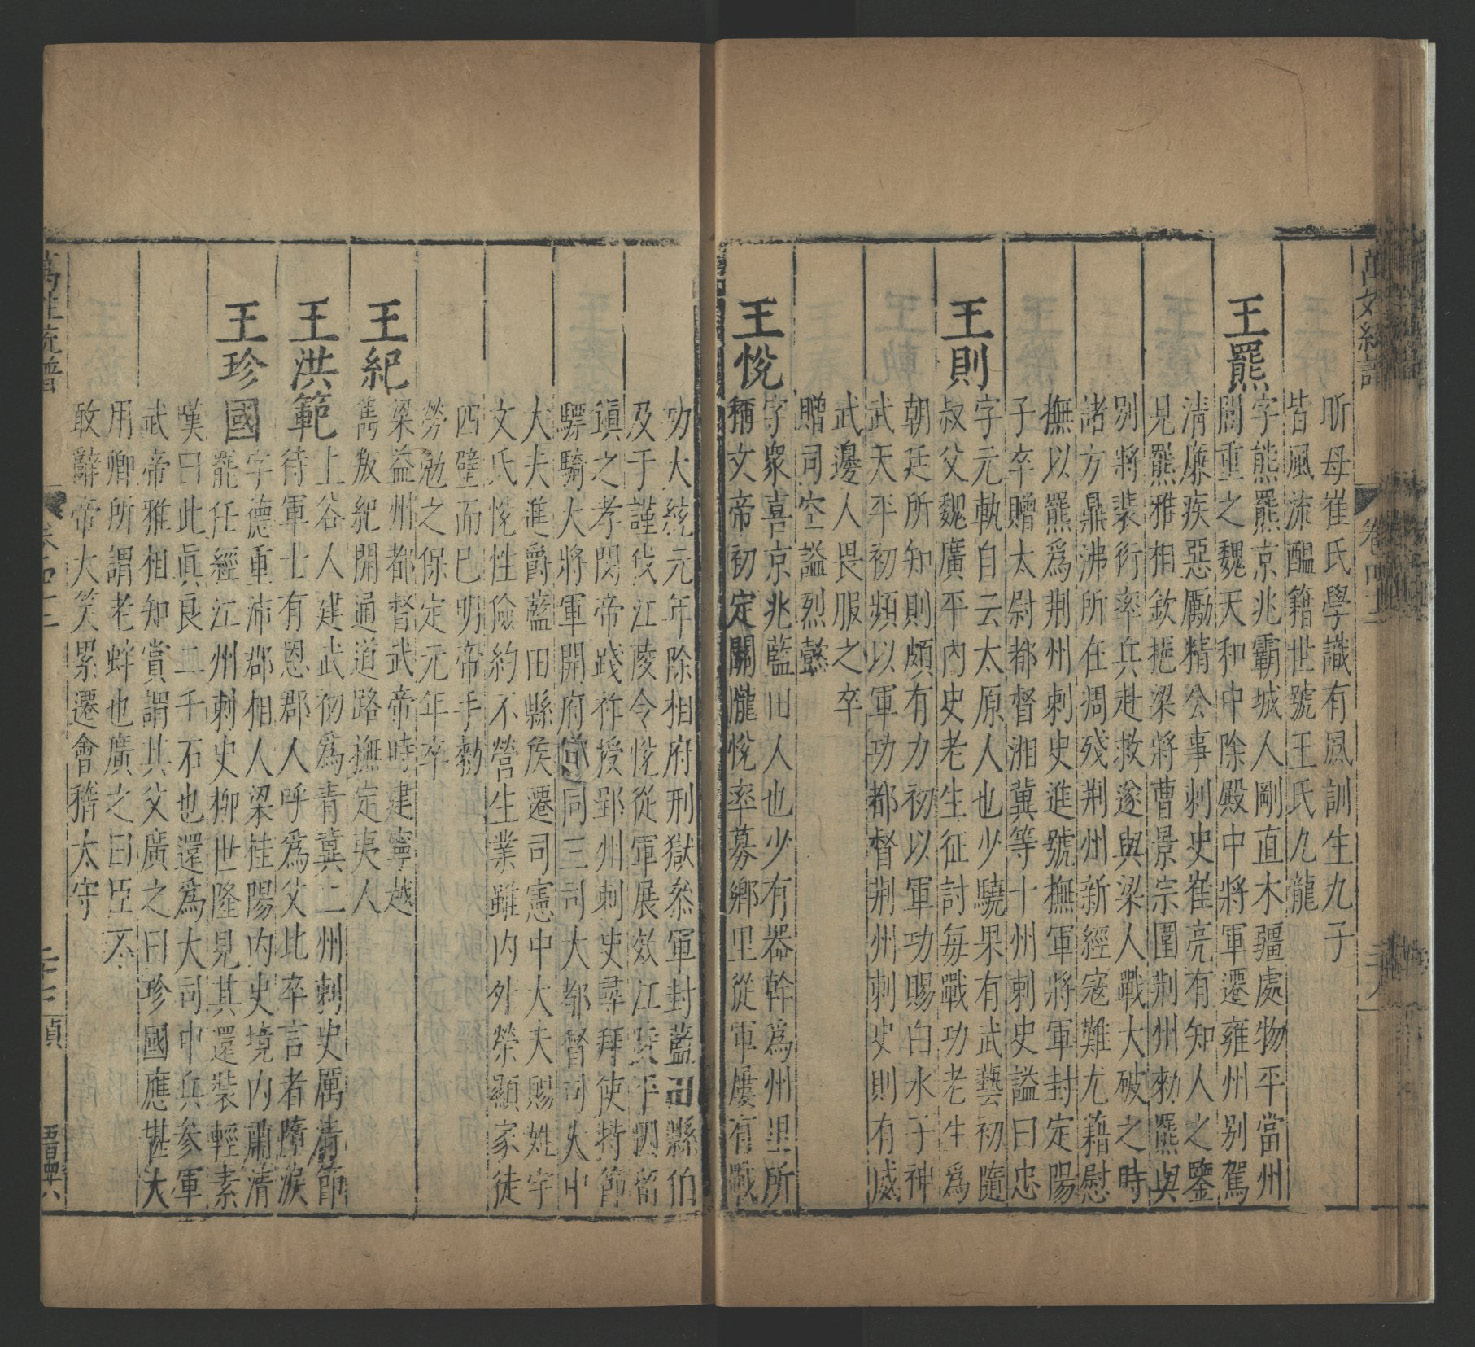 昕母崔氏學識有風訓生九子
皆風流醞籍世號王氏九龍
王羆
字熊羆京兆霸城人剛直木彊處物平當州
閭重之魏天和中除殿中將軍遷雍州别駕
清廉疾惡勵精公事刺史崔亮有知人之鑒
見羆雅相欽挹梁將曹景宗圍荆州勑羆與
别將裴衍率兵赴救遂與梁人戰大破之時
諸方鼎沸所在凋殘荆州新經寇難尤藉慰
撫以羆爲荆州刺史進號撫軍將軍封定陽
子卒贈太尉都督湘冀等十州刺史謚曰忠
王則
字元軌自云太原人也少驍果有武藝初隨
叔父魏廣平内史老生征討每戰功老生爲
朝廷所知則頗有力初以軍功賜白水子神
武天平初頻以軍功都督荆州刺史則有威
武邊人畏服之卒
贈司空謚烈懿
王悅
字衆喜京兆藍田人也少有器幹爲州里所
稱文帝初定關隴悅率募鄉里從軍屢有戰
功大統元年除相府刑獄叅軍封藍田縣伯
及于謹伐江陵令悅從軍展效江陵平因留
鎮之孝閔帝踐祚授郢州刺史尋拜使持節
驃騎大將軍開府儀同三司大都督司大中
大夫進爵藍田縣侯遷司憲中大夫賜姓宇
文氏悅性儉約不營生業雖内外榮顯家徒
四壁而已明帝手勑
勞勉之保定元年卒
王紀
梁益州都督武帝時建寧越
雋叛紀開通道路撫定夷人
王洪範
上谷人建武初爲青冀二州刺史厲清節
待軍士有恩郡人呼爲父比卒言者隋淚
王珍國
字德重沛郡相人梁桂陽内史境内肅清
罷任經江州刺史柳世隆見其還裝輕素
嘆曰此眞良二千石也還爲大司中兵參軍
武帝雅相知賞謂其父廣之曰珍國應堪大
用卿所謂老蚌也廣之曰臣不
敢辭帝大笑累遷會稽太守